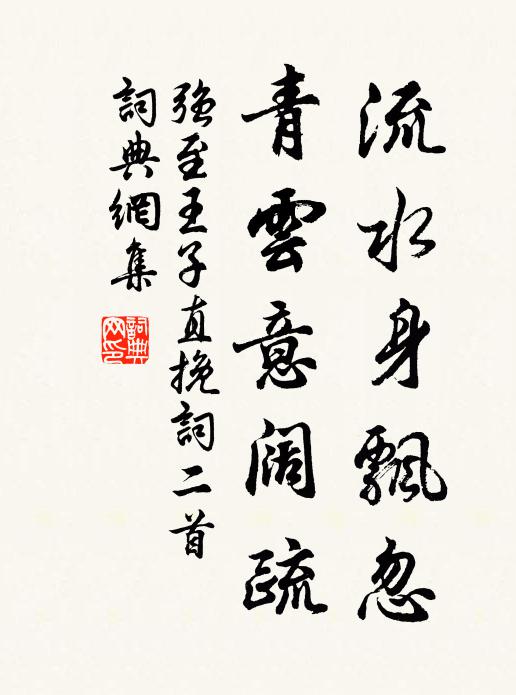 流水身飄忽
青雲意阔疏
強至王子直挽詞二首
詞典網集
詞典网印